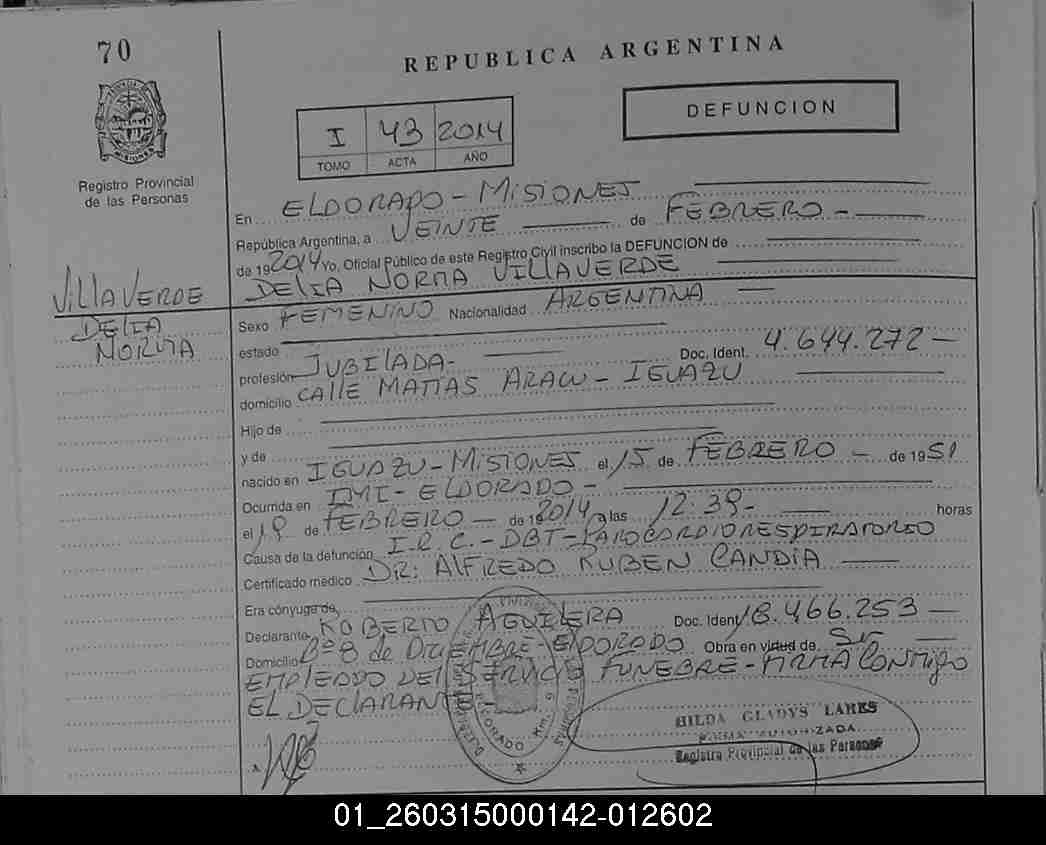 70
REPUBLICA ARGENTINA
I 43 2014
TOMO ACTA AÑO
DEFUNCION
Registro Provincial
de las Personas
En ELDORADO - MISIONES
República Argentina, a VEINTE de FEBRERO -
de 192014 Yo, Oficial Público de este Registro Civil inscribo la DEFUNCION de
VILLAVERDE DELIA NORMA VILLAVERDE
DELIA
NORMA
Sexo FEMENINO Nacionalidad ARGENTINA
estado
profesión JUBILADA - Doc. Ident. 4.644.272 -
domicilio CALLE MATIAS ARACU - IGUAZU
Hijo de
y de
nacido en IGUAZU - MISIONES el 15 de FEBRERO - de 1951
Ocurrida en IMI - ELDORADO -
el 19 de FEBRERO - de 192014 a las 12:39 - horas
Causa de la defunción I.R.C. - DBT - PAROCARDIORESPIRATORIO
Certificado médico DR: ALFREDO RUBEN CANDIA
Era cónyuge de
Declarante ROBERTO AGUILERA Doc. Ident. 18.466.253 -
Domicilio Bº 8 de DICIEMBRE - ELDORADO Obra en virtud de Ser
EMPLEADO DEL SERVICIO FUNEBRE - FIRMA CONMIGO
EL DECLARANTE -
HILDA GLADYS LARES
Registro Provincial de las Personas
ELDORADO Km. 9
01_260315000142-012602